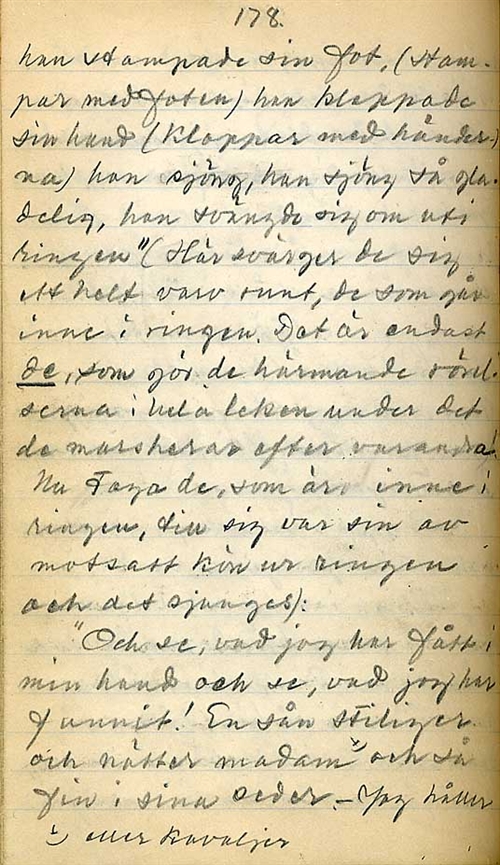 178.
han stampade sin fot, (stam-
par med foten) han klappade
sin hand (klappar med händer-
na) han sjöng, han sjöng så gla-
delig, han svängde sig om uti
ringen" (Här svänger de sig
ett helt varv runt, de som går
inne i ringen. Det är endast
de, som gör de härmande rörel-
serna i hela leken under det
de marsherar efter varandra!
Nu taga de, som äro inne i
ringen, till sig var sin av
motsatt kön ur ringen
och det sjunges):
"Och se, vad jag har fått i
min hand och se, vad jag har
funnit! En sån stiliger
och nätter madam x) och så
fin i sina seder. – Jag håller
x) eller kavaljer